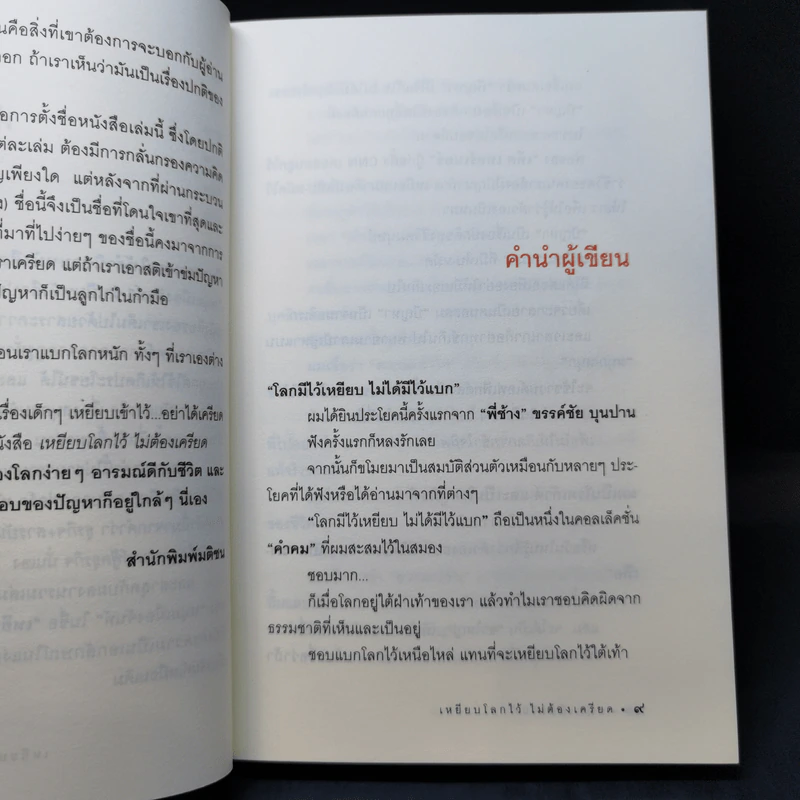 นคือสิ่งที่เขาต้องการจะบอกกับผู้อ่าน
ออก ถ้าเราเห็นว่ามันเป็นเรื่องปกติของ
อการตั้งชื่อหนังสือเล่มนี้ ซึ่งโดยปกติ
ต่ละเล่ม ต้องมีการกลั่นกรองความคิด
ญเพียงใด แต่หลังจากที่ผ่านกระบวน
) ชื่อนี้จึงเป็นชื่อที่โดนใจเขาที่สุดและ
ที่มาที่ไปง่ายๆ ของชื่อนี้คงมาจากการ
ราเครียด แต่ถ้าเราเอาสติเข้าข่มปัญหา
ปัญหาก็เป็นลูกไก่ในกำมือ
อนเราแบกโลกหนัก ทั้งๆ ที่เราเองต่าง
เรื่องเด็กๆ เหยียบเข้าไว้...อย่าได้เครียด
นังสือ เหยียบโลกไว้ ไม่ต้องเครียด
องโลกง่ายๆ อารมณ์ดีกับชีวิต และ
อบของปัญหาก็อยู่ใกล้ๆ นี่เอง
สำนักพิมพ์มติชน
คำนำผู้เขียน
“โลกมีไว้เหยียบ ไม่ได้มีไว้แบก”
ผมได้ยินประโยคนี้ครั้งแรกจาก “พี่ช้าง” ขรรค์ชัย บุนปาน
ฟังครั้งแรกก็หลงรักเลย
จากนั้นก็ขโมยมาเป็นสมบัติส่วนตัวเหมือนกับหลายๆ ประ-
โยคที่ได้ฟังหรือได้อ่านมาจากที่ต่างๆ
“โลกมีไว้เหยียบ ไม่ได้มีไว้แบก” ถือเป็นหนึ่งในคอลเล็คชั่น
“คำคม” ที่ผมสะสมไว้ในสมอง
ชอบมาก...
ก็เมื่อโลกอยู่ใต้ฝ่าเท้าของเรา แล้วทำไมเราชอบคิดผิดจาก
ธรรมชาติที่เห็นและเป็นอยู่
ชอบแบกโลกไว้เหนือไหล่ แทนที่จะเหยียบโลกไว้ใต้เท้า
เหยียบโลกไว้ ไม่ต้องเครียด • ๙